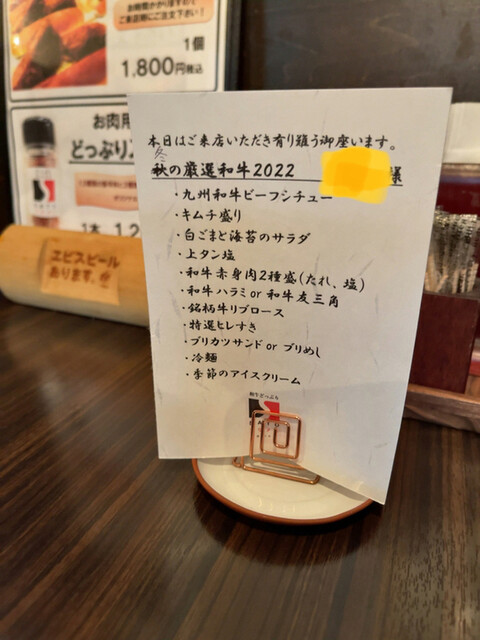 お時間かかりますので
ご来店時にご注文下さい!
1個
1,800円税込
お肉用
どっぷり
1本
ヱビスビール
あります。
本日はご来店いただき有り難う御座います。
冬
秋の厳選和牛2022
様
・九州和牛ビーフシチュー
・キムチ盛り
・白ごまと海苔のサラダ
・上タン塩
・和牛赤身肉2種盛(たれ、塩)
・和牛ハラミor和牛友三角
・銘柄牛リブロース
・特選ヒレすき
・ブリカツサンドorブリめし
・冷麺
・季節のアイスクリーム